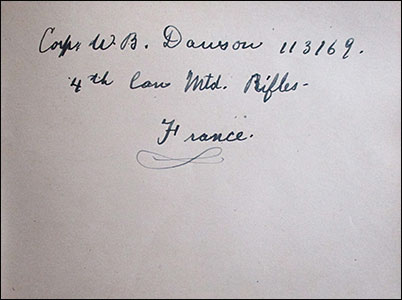 Corp. W. B. Dawson 113169.
4th Can Mtd. Rifles-
France.